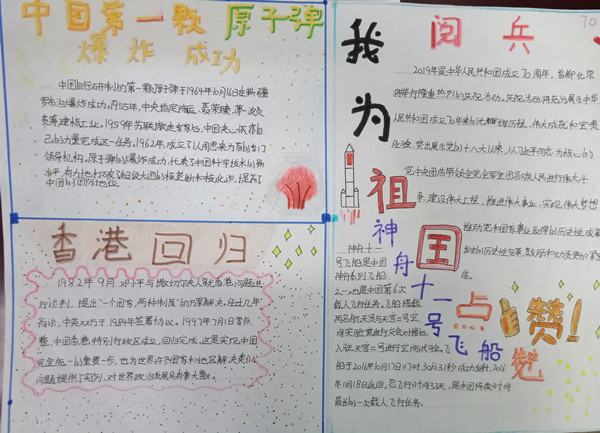 中国第一颗原子弹
爆炸成功
中国自行研制的第一颗原子弹于1964年10月16日在新疆
罗布泊爆炸成功。1955年,中央指定陈云、聂荣臻、薄一波
负责建核工业。1959年苏联撤走专家,中国决心依靠自
己的力量完成这一任务。1962年,成立了以周恩来为首的专门
领导机构。原子弹的爆炸成功,代表了中国科学技术的新
水平,有力地打破了超级大国的核垄断和核讹诈,提高了
中国的国际地位
香港回归
1982年9月邓小平与撒切尔夫人就香港问题进
行谈判,提出"一个国家,两种制度"的方案解决,经过几年
商谈,中英双方于1984年签署协议。1997年7月1日零点
整,中国香港特别行政区成立,回归完成,这是实现中国
完全统一的重要一步,也为世界许多国家和地区解决类似
问题提供了实例,对世界政治发展具有重大意义。
70
阅兵
我为祖国点赞
2019年是中华人民共和国成立70周年,首都北京
将举行隆重热烈的庆祝活动。庆祝活动将充分展示中华
人民共和国成立70年来的光辉历程、伟大成就和宝贵
经验,突出展示党的十八大以来,以习近平同志为核心的
党中央团结带领全党全军全国各族人民进行伟大斗
争、建设伟大工程、推进伟大事业、实现伟大梦想
推动党和国家事业取得的历史性成就
赞!
神舟十一号飞船
神舟十一
号飞船是中国
神舟系列飞船
之一,也是中国第6次
载人飞行任务。飞船搭载
两名航天员与天宫二号空
间实验室进行交会对接后,
入驻天宫二号进行空间试验。飞
船于2016年10月17日07时30分31秒成功发射,2016
年11月18日返回,总飞行时间33天,是中国持续时间
最长的一次载人飞行任务。